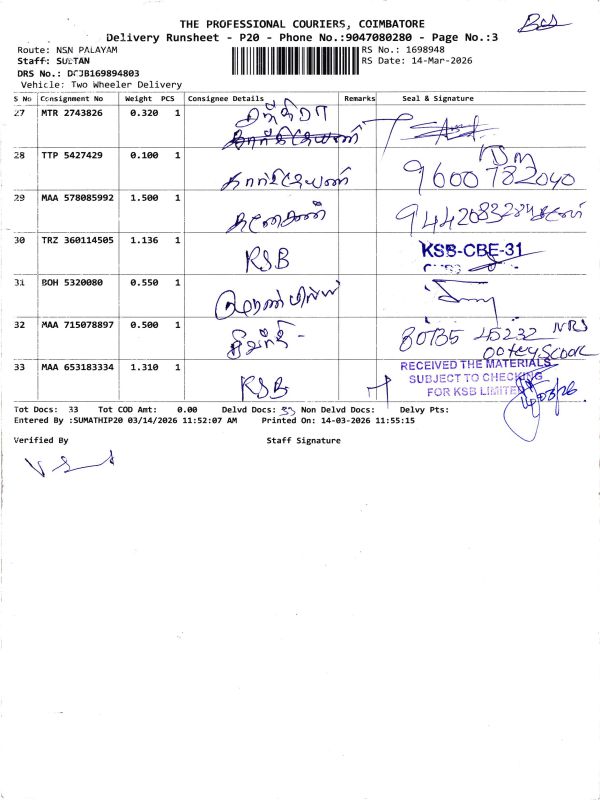 THE PROFESSIONAL COURIERS, COIMBATORE
Delivery Runsheet - P20 - Phone No.:9047080280 - Page No.:3
Route: NSN PALAYAM
RS No.: 1698948
Staff: SULTAN
RS Date: 14-Mar-2026
DRS No.: DCJB169894803
Vehicle: Two Wheeler Delivery
S No Consignment No Weight PCS Consignee Details Remarks Seal & Signature
27 MTR 2743826 0.320 1
28 TTP 5427429 0.100 1 கார்த்திகேயணி 9600782040
29 MAA 578085992 1.500 1
30 TRZ 360114505 1.136 1 KSB KSB-CBE-31
31 BOH 5320080 0.550 1
32 MAA 715078897 0.500 1 80735 45232 NRS
33 MAA 653183334 1.310 1 KSB RECEIVED THE MATERIALS
SUBJECT TO CHECKING
FOR KSB LIMITED
Tot Docs: 33 Tot COD Amt: 0.00 Delvd Docs: 33 Non Delvd Docs: Delvy Pts:
Entered By :SUMATHIP20 03/14/2026 11:52:07 AM Printed On: 14-03-2026 11:55:15
Verified By Staff Signature